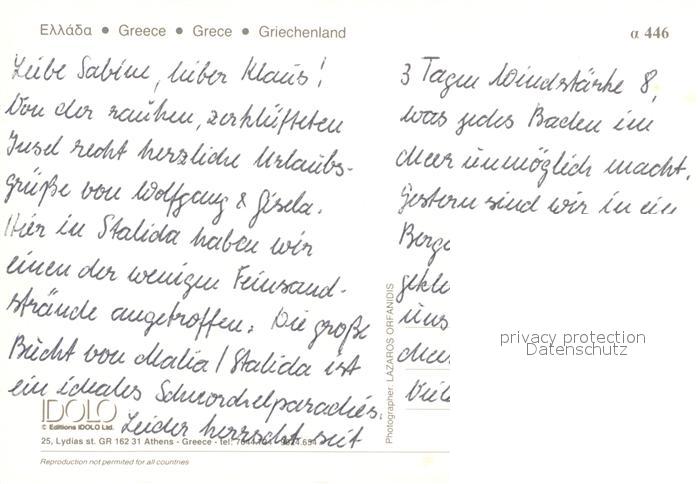 Ελλάδα • Greece • Grece • Griechenland
α 446
Liebe Sabine, lieber Klaus!
Von der rauhen, zerklüfteten
Insel recht herzliche Urlaubs-
grüße von Wolfgang & Gisela.
Hier in Stalida haben wir
einen der wenigen Feinsand-
strände angetroffen. Die große
Bucht von Malia / Stalida ist
ein ideales Schnorchelparadies.
Leider herrscht seit
3 Tagen Windstärke 8,
was jedes Baden im
Meer unmöglich macht.
Gestern sind wir in ein
Berg
uns
Photographer: LAZAROS ORFANIDIS
privacy protection
Datenschutz
IDOLO
© Editions IDOLO Ltd.
25, Lydias st. GR 162 31 Athens - Greece - tel:
Reproduction not permited for all countries